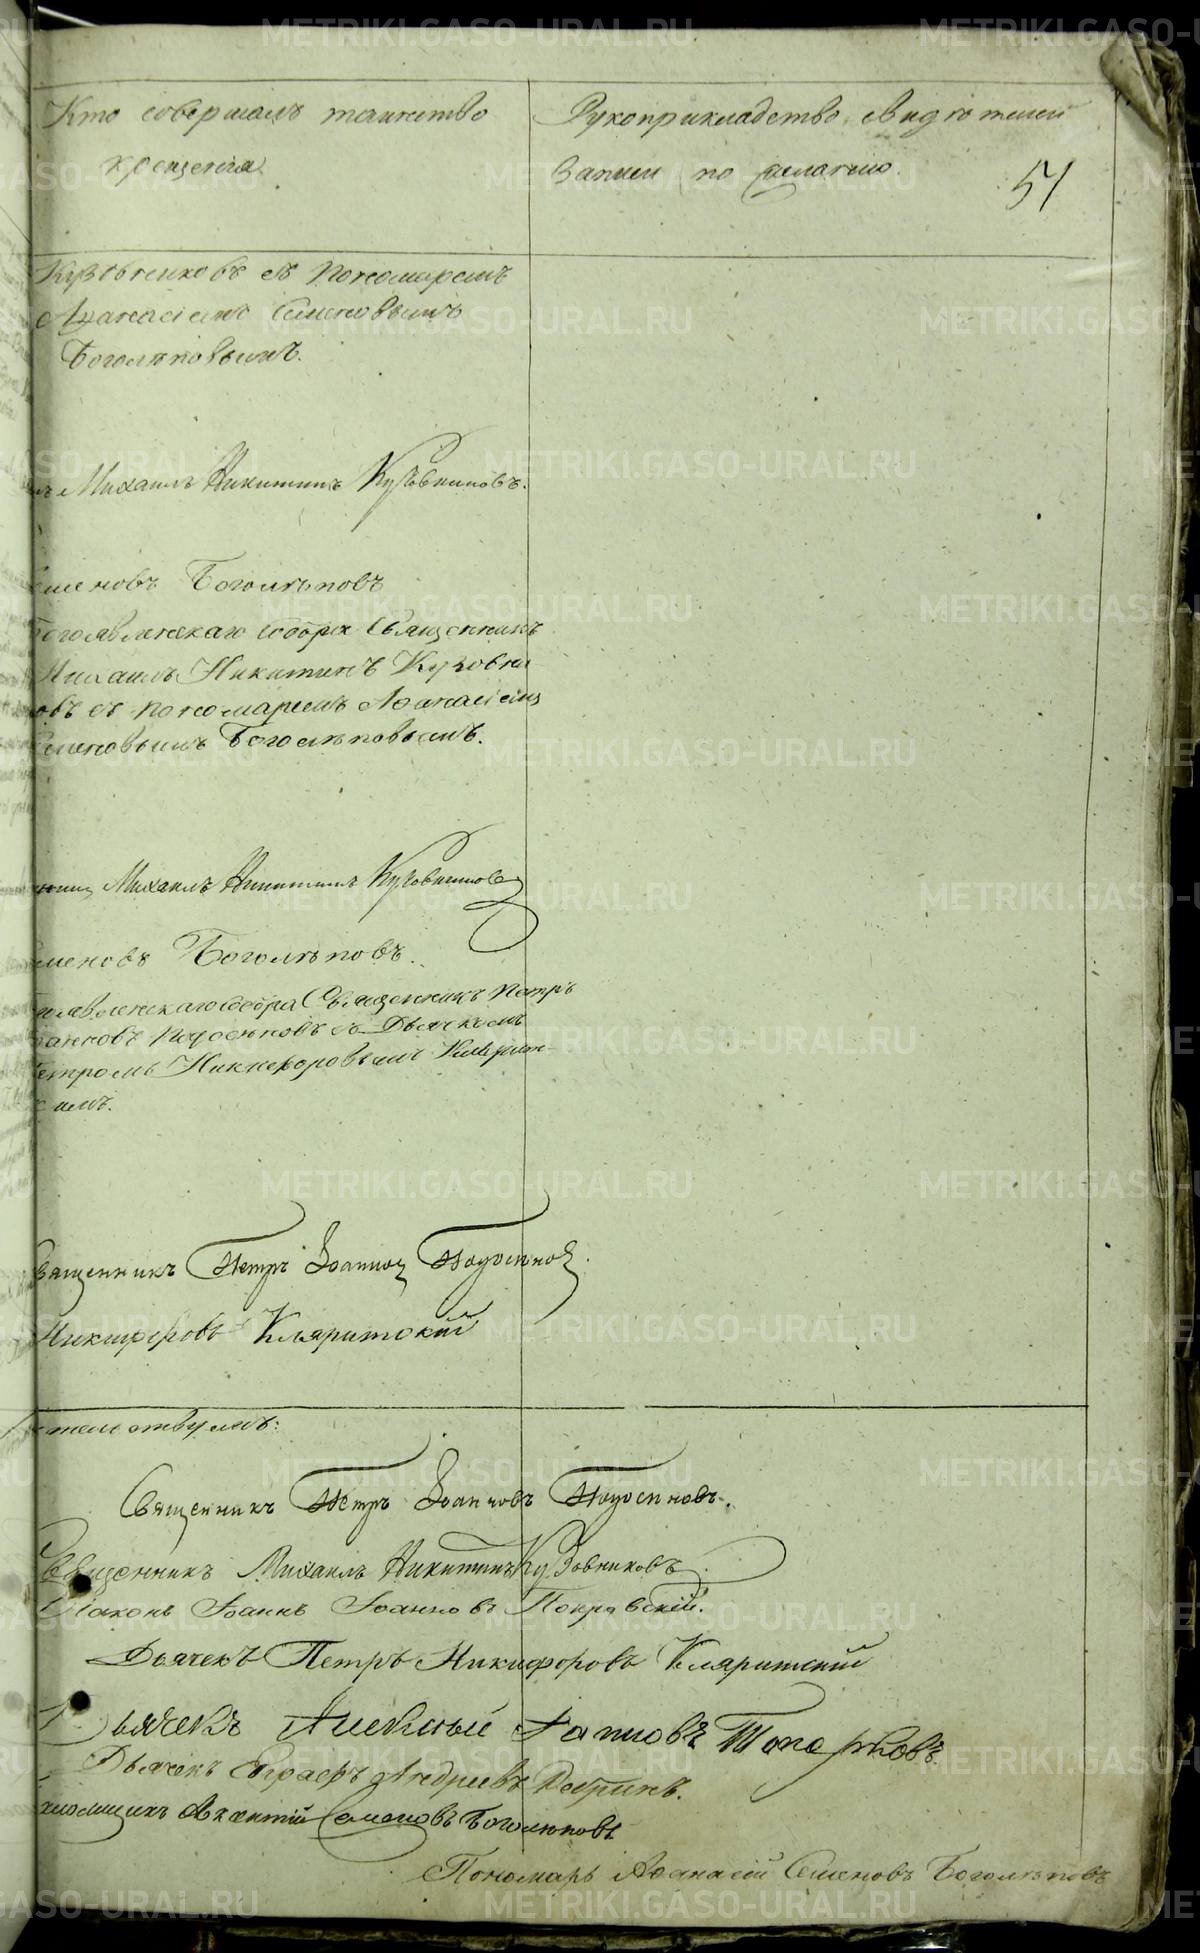 Кто совершалъ таинство
крещенія.
Рукоприкладство свидѣтелей
записи по желанію.
51
Кузовниковъ съ Пономаремъ
Аѳанасіемъ Семеновымъ
Боголѣповымъ.
Михаилъ Никитинъ Кузовниковъ.
еменовъ Боголѣповъ
Богоявленскаго собора Священникъ
Михаилъ Никитинъ Кузовни
овъ съ пономаремъ Аѳанасіемъ
Семеновымъ Боголѣповымъ.
Михаилъ Никитинъ Кузовниковъ
меновъ Боголѣповъ.
явленскаго собора Священникъ Петръ
анновъ Подосеновъ съ Дьячкомъ
Петромъ Никифоровымъ Кляритс-
кимъ.
Священникъ Петръ Іоанновъ Подосеновъ.
Никифоровъ Кляритскій
тельствуемъ:
Священникъ Петръ Іоанновъ Подосеновъ.
Священникъ Михаилъ Никитинъ Кузовниковъ.
Діаконъ Іоаннъ Іоанновъ Покровскій.
Дьячекъ Петръ Никифоровъ Кляритскій
Дьячекъ Алексѣй Топорковъ
Дьячекъ Андреевъ
Семеновъ Боголѣповъ
Пономарь Аѳанасій Семеновъ Боголѣповъ
METRIKI.GASO-URAL.RU